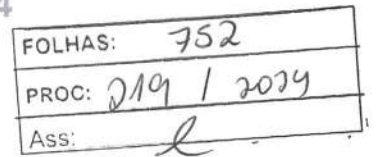 4
FOLHAS: 752
PROC: 219 / 2024
Ass: